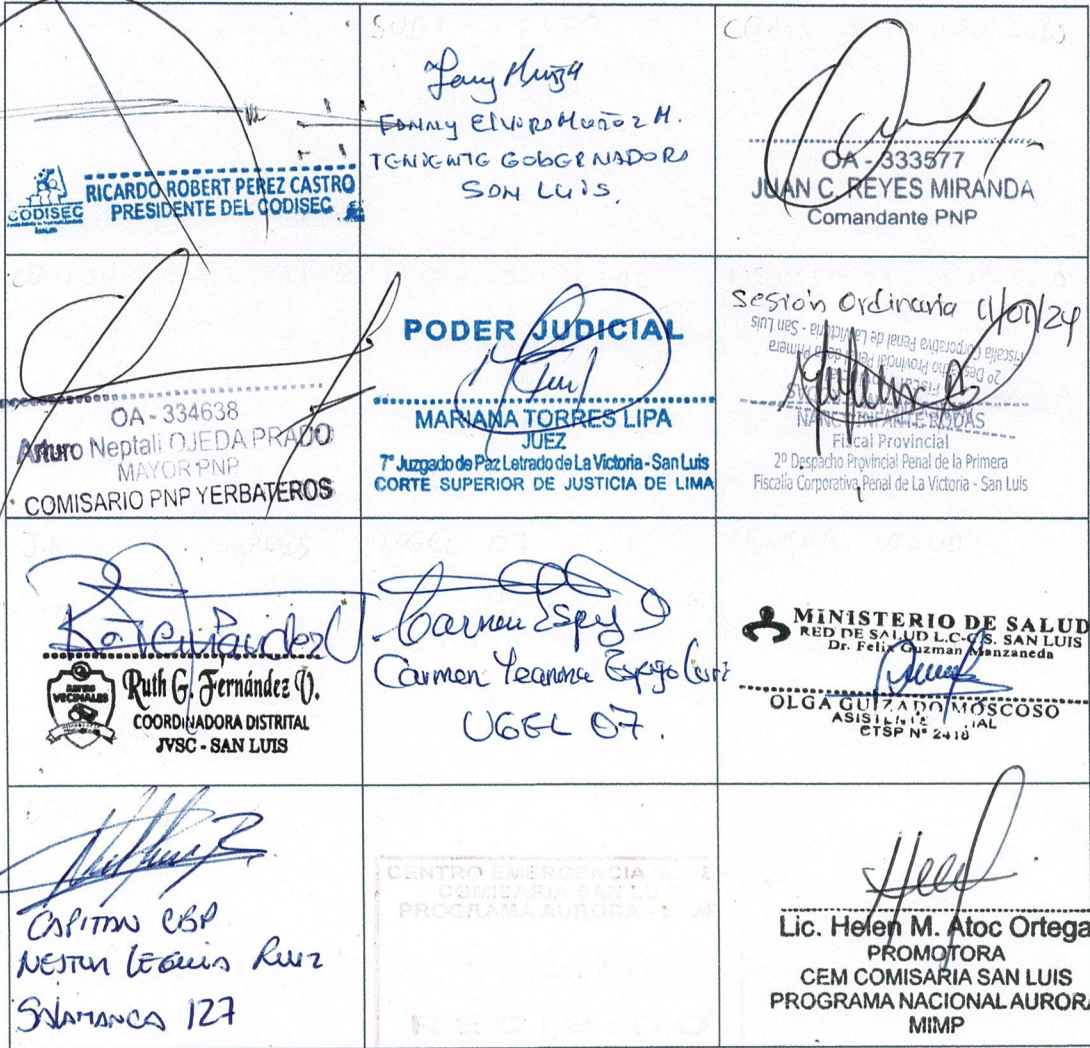 CODISEC
RICARDO ROBERT PEREZ CASTRO
PRESIDENTE DEL CODISEC
FANNY ELVIRA MUÑOZ M.
TENIENTE GOBERNADORA
SAN LUIS.
OA - 333577
JUAN C. REYES MIRANDA
Comandante PNP
OA - 334638
Arturo Neptali OJEDA PRADO
MAYOR PNP
COMISARIO PNP YERBATEROS
PODER JUDICIAL
MARIANA TORRES LIPA
JUEZ
7° Juzgado de Paz Letrado de La Victoria - San Luis
CORTE SUPERIOR DE JUSTICIA DE LIMA
Sesión Ordinaria 11/01/24
Fiscalía Corporativa Penal de La Victoria - San Luis
NANCY INFANTE RODAS
Fiscal Provincial
2º Despacho Provincial Penal de la Primera
Fiscalía Corporativa Penal de La Victoria - San Luis
JUNTAS
VECINALES
Ruth G. Fernández V.
COORDINADORA DISTRITAL
JVSC - SAN LUIS
Carmen Espejo
Carmen Espejo
UGEL 07.
MINISTERIO DE SALUD
RED DE SALUD L.C-C.S. SAN LUIS
Dr. Felix Guzman Manzaneda
OLGA GUIZADO MOSCOSO
CTSP Nº 2418
CAPITAN CBP
NESTOR LEGUIA RUIZ
SALAMANCA 127
CENTRO EMERGENCIA
COMISARIA SAN LUIS
PROGRAMA AURORA -
RECIBIDO
Lic. Helen M. Atoc Ortega
PROMOTORA
CEM COMISARIA SAN LUIS
PROGRAMA NACIONAL AURORA
MIMP